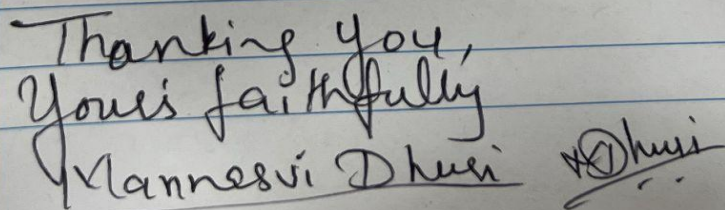 Thanking you,
Yours faithfully
Mannesvi Dhuri